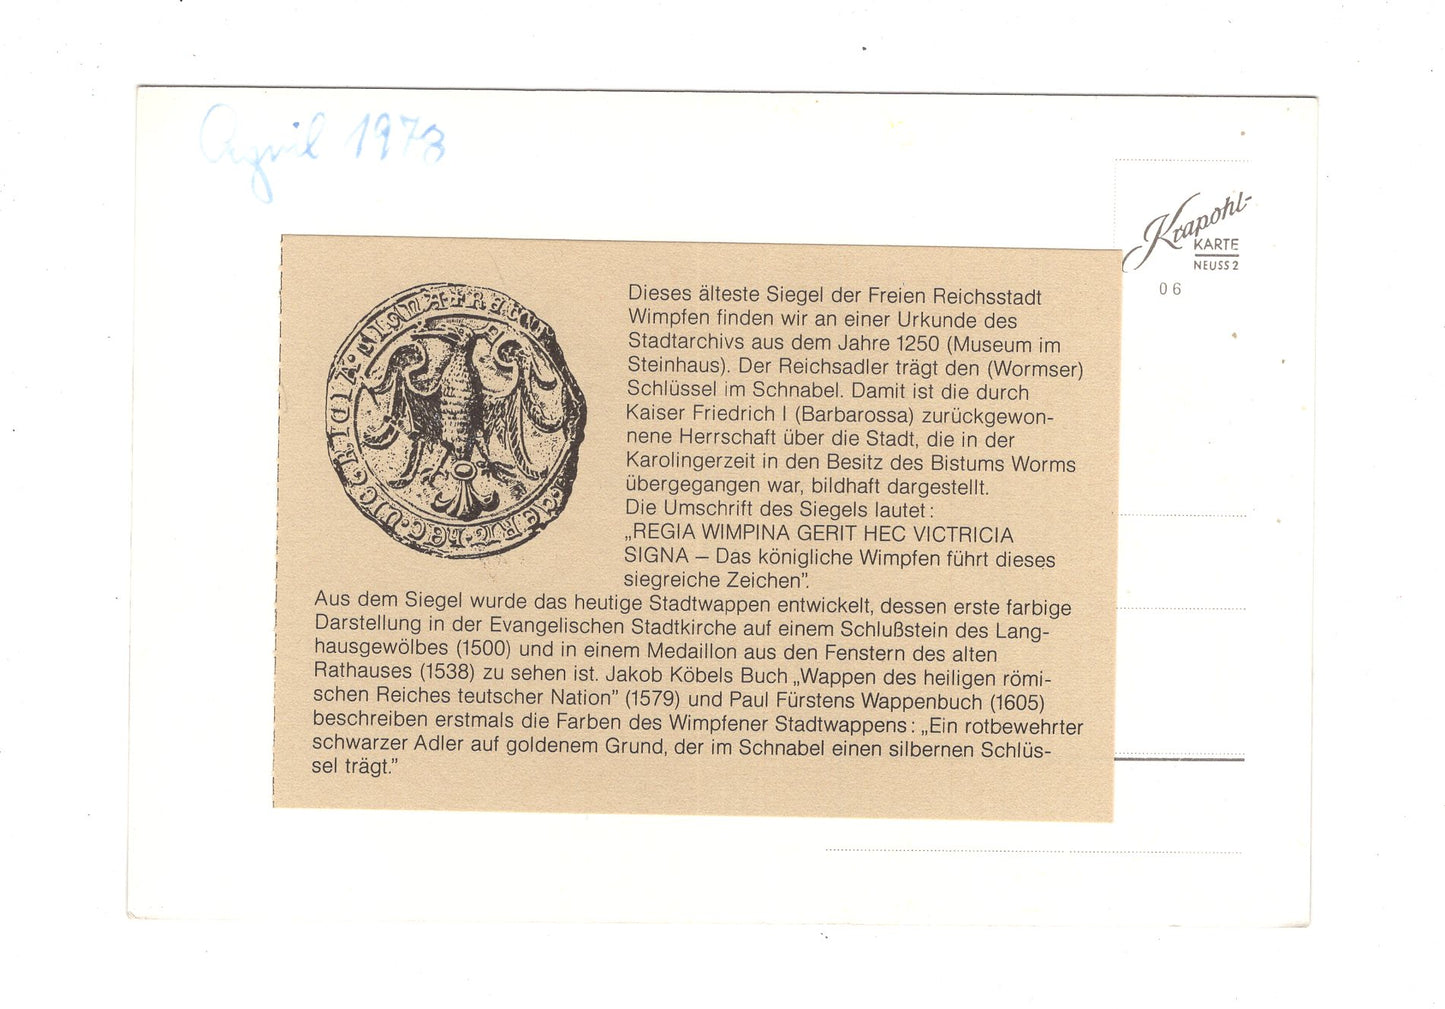 April 1973
Krapohl-
KARTE
NEUSS 2
06
Dieses älteste Siegel der Freien Reichsstadt
Wimpfen finden wir an einer Urkunde des
Stadtarchivs aus dem Jahre 1250 (Museum im
Steinhaus). Der Reichsadler trägt den (Wormser)
Schlüssel im Schnabel. Damit ist die durch
Kaiser Friedrich I (Barbarossa) zurückgewon-
nene Herrschaft über die Stadt, die in der
Karolingerzeit in den Besitz des Bistums Worms
übergegangen war, bildhaft dargestellt.
Die Umschrift des Siegels lautet:
„REGIA WIMPINA GERIT HEC VICTRICIA
SIGNA – Das königliche Wimpfen führt dieses
siegreiche Zeichen”.
Aus dem Siegel wurde das heutige Stadtwappen entwickelt, dessen erste farbige
Darstellung in der Evangelischen Stadtkirche auf einem Schlußstein des Lang-
hausgewölbes (1500) und in einem Medaillon aus den Fenstern des alten
Rathauses (1538) zu sehen ist. Jakob Köbels Buch „Wappen des heiligen römi-
schen Reiches teutscher Nation” (1579) und Paul Fürstens Wappenbuch (1605)
beschreiben erstmals die Farben des Wimpfener Stadtwappens: „Ein rotbewehrter
schwarzer Adler auf goldenem Grund, der im Schnabel einen silbernen Schlüs-
sel trägt.”